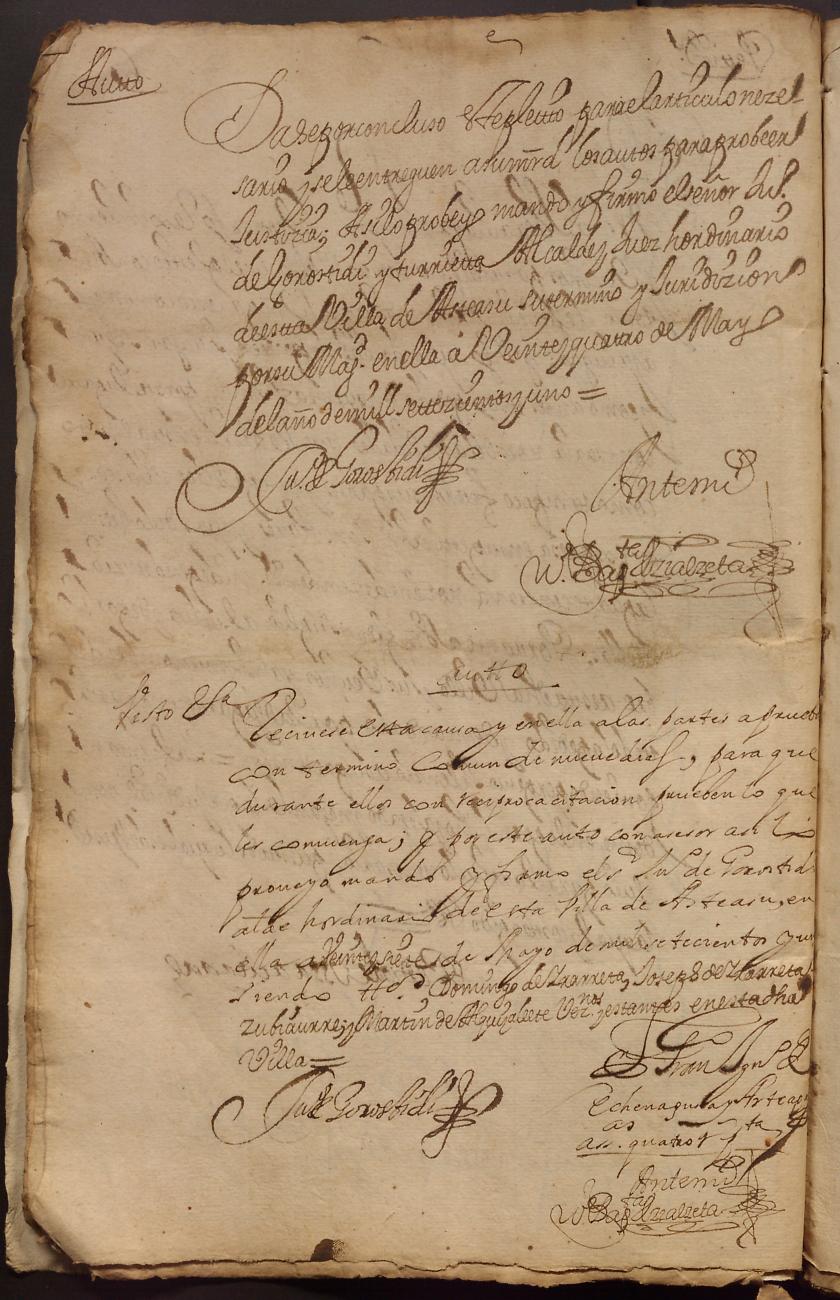 Autto
Dase por concluso este pleitto para el articulo nezes
sario y se le entreguen a su mrd los autos para probeer
Justizia; Asi lo probeyo mando y firmo el señor Ju.
de Gorostidi y Yturrietta Alcalde y Juez hordinario
de esta Villa de Asteasu su termino y Juridizion
por su Magd. en ella a Veinte y quatro de Mayo
del año de mill settezientos y uno =
Ju. de Gorostidi
Antemi
Bapta
Autto
Visto &a
Recivese esta causa y en ella a las partes a prueba
con termino Comun de nueve dias, y para que
durante ellos con reciproca citacion prueben lo que
les convenga; y por este auto con asesor asi lo
proveyo mando y firmo el sr Ju. de Gorostidi
alde hordinario de esta Villa de Asteasu, en
ella a Veinte y siete de Mayo de mil setecientos y uno
siendo tto Domingo de Yrarreta, Joseph de Yrarreta
Zubiaurre, y Martin de Aguzalete Vezos y estantes en esta dha
Villa =
Ju. de Gorostidi
Fran
Echenagusia y Arteaga
as. quatro
Antemi
Bapta